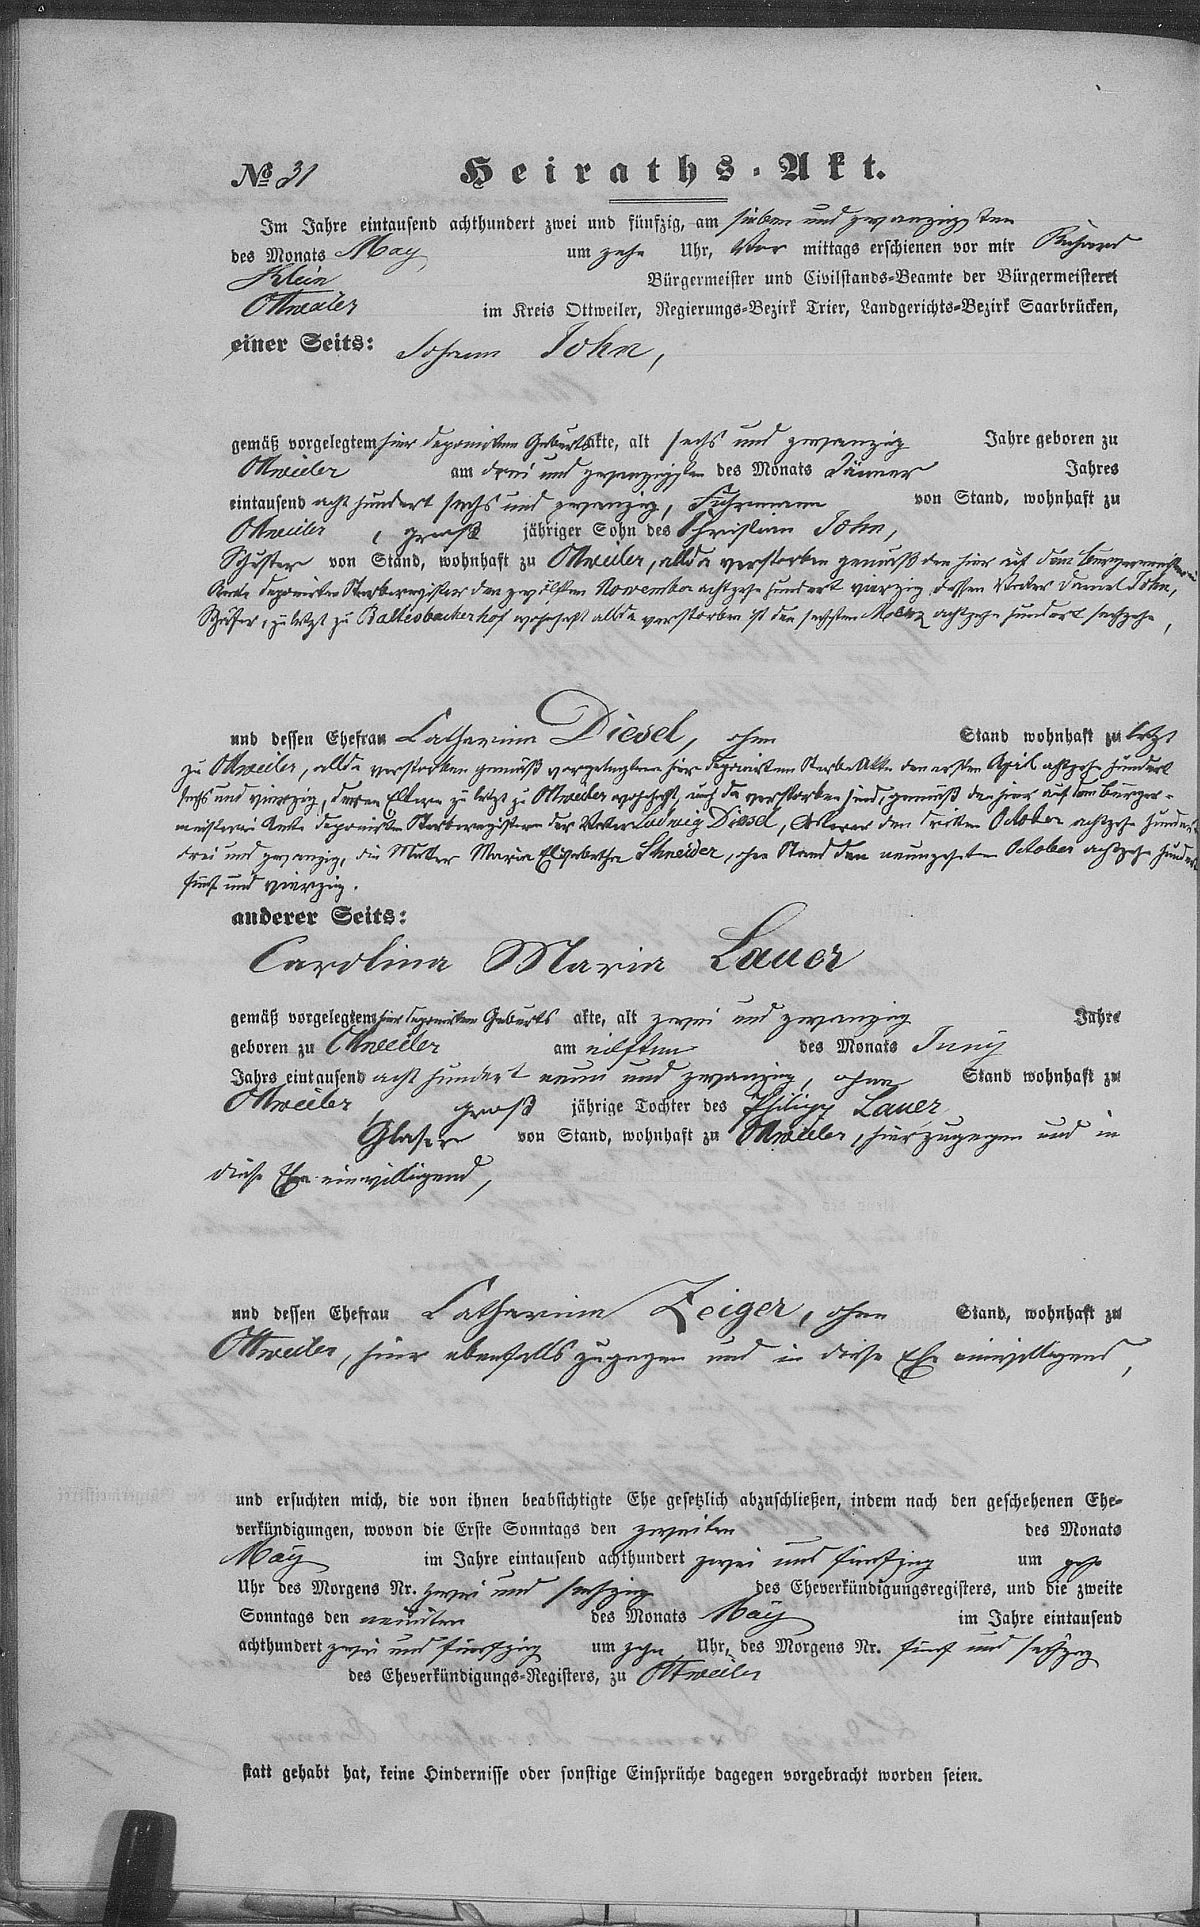 № 31 Heiraths-Akt.
Im Jahre eintausend achthundert zwei und fünfzig, am sieben und zwanzigsten
des Monats May um zehn Uhr, Vor mittags erschienen vor mir Richard
Klein Bürgermeister und Civilstands-Beamte der Bürgermeisterei
Ottweiler im Kreis Ottweiler, Regierungs-Bezirk Trier, Landgerichts-Bezirk Saarbrücken,
einer Seits: Johann John,
gemäß vorgelegtem hier deponirten Geburtsakte, alt sechs und zwanzig Jahre geboren zu
Ottweiler am drei und zwanzigsten des Monats Jänner Jahres
eintausend acht hundert sechs und zwanzig, Fuhrmann von Stand, wohnhaft zu
Ottweiler, groß jähriger Sohn des Christian John,
Schuster von Stand, wohnhaft zu Ottweiler, allda verstorben gemäß den hier auf dem Bürgermeisterei
Amte deponirten Sterberegister den zwölften November achtzehn hundert vierzig dessen Vater Daniel John,
Schäfer, zuletzt zu Baltesbacherhof wohnhaft allda verstorben ist den sechsten März achtzehn hundert sechzehn,
und dessen Ehefrau Catharina Diesel, ohne Stand wohnhaft zuletzt
zu Ottweiler, allda verstorben gemäß vorgelegtem hier deponirten Sterbeakte den ersten April achtzehn hundert
sechs und vierzig, deren Eltern zuletzt zu Ottweiler wohnhaft, auch da verstorben sind, gemäß den hier auf dem Bürger-
meisterei Amte deponirten Sterberegistern der Vater Ludwig Diesel, Ackerer den dritten October achtzehn hundert
drei und zwanzig, die Mutter Maria Elisabetha Schneider, ohne Stand den neunzehnten October achtzehn hundert
fünf und vierzig.
anderer Seits:
Carolina Maria Lauer
gemäß vorgelegtem hier deponirten Geburts akte, alt zwei und zwanzig Jahre
geboren zu Ottweiler am eilften des Monats Juny
Jahrs eintausend acht hundert neun und zwanzig, ohne Stand wohnhaft zu
Ottweiler, groß jährige Tochter des Philipp Lauer
Glaser von Stand, wohnhaft zu Ottweiler, hier zugegen und in
diese Ehe einwilligend,
und dessen Ehefrau Catharina Zeiger, ohne Stand, wohnhaft zu
Ottweiler, hier ebenfalls zugegen und in diese Ehe einwilligend,
und ersuchten mich, die von ihnen beabsichtigte Ehe gesetzlich abzuschließen, indem nach den geschehenen Ehe-
verkündigungen, wovon die Erste Sonntags den zweiten des Monats
May im Jahre eintausend achthundert zwei und fünfzig um zehn
Uhr des Morgens Nr. zwei und sechzig des Eheverkündigungsregisters, und die zweite
Sonntags den neunten des Monats May im Jahre eintausend
achthundert zwei und fünfzig um zehn Uhr, des Morgens Nr. fünf und sechzig
des Eheverkündigungs-Registers, zu Ottweiler
statt gehabt hat, keine Hindernisse oder sonstige Einsprüche dagegen vorgebracht worden seien.